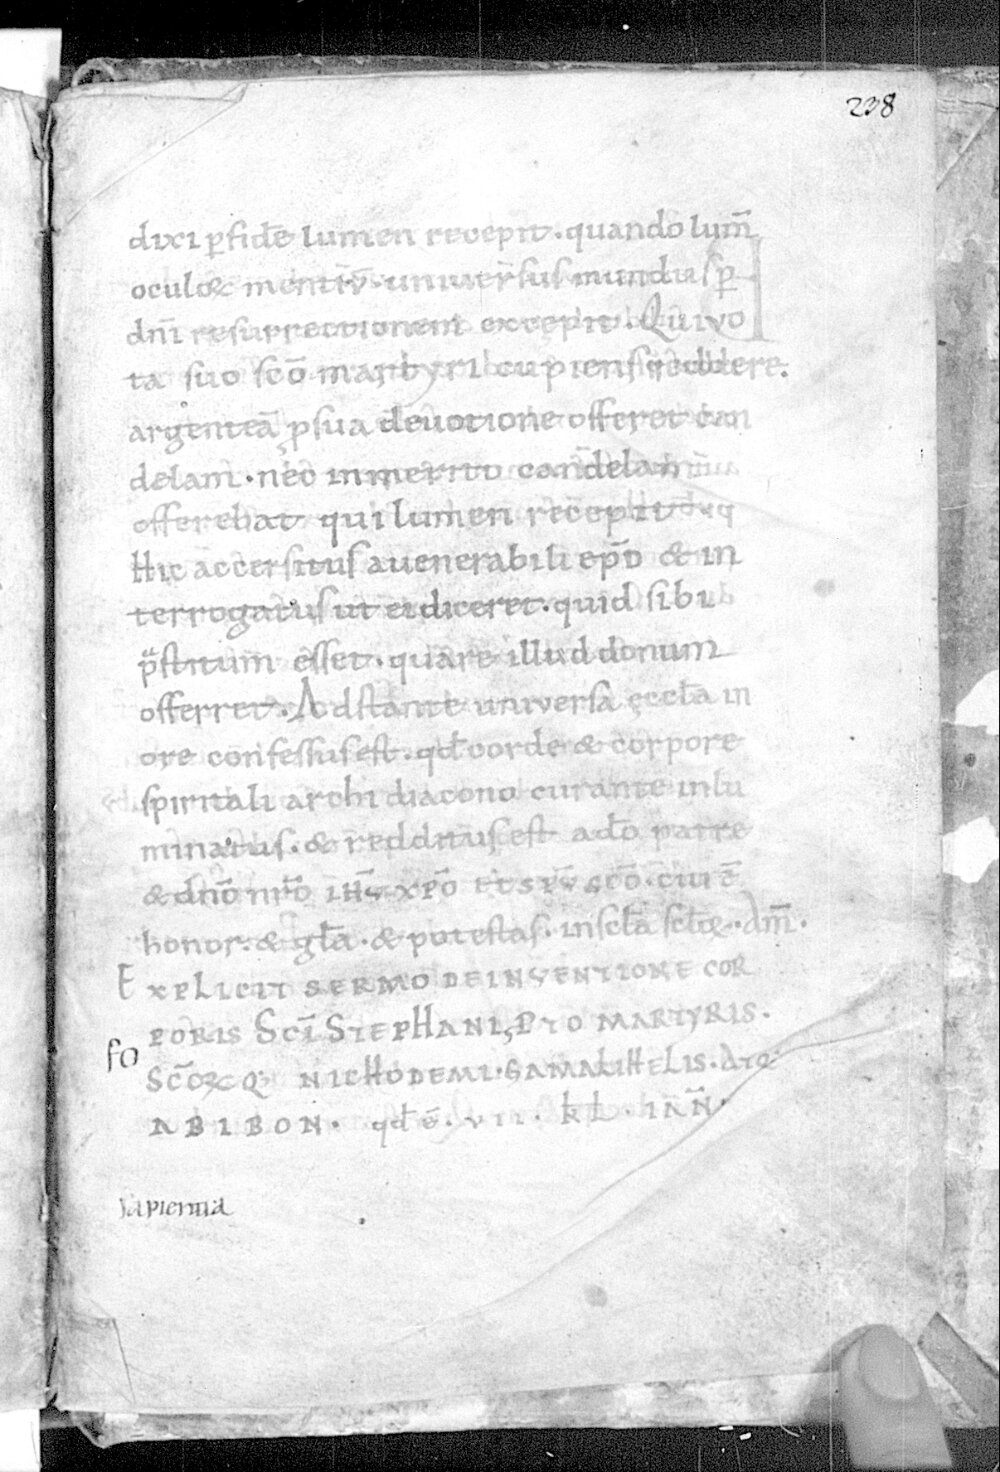 238
dixi ꝑfidē lumen recepit. quando lum̄
oculoꝝ mentiū. uniuersus mundus ꝑ
dn̄i resurrectionem excepit. Qui vo
ta suo sc̄o martyri cupiens reddere.
argenteā ꝓ sua deuotione offeret can
delam. nec inmerito candelam
offerebat qui lumen recepit
Hic accersitus a uenerabili ep̄o & in
terrogatus ut ei diceret. quid sibi
p̄stitum esset. quare illud donum
offerret. Adstante universa ęccl̄a in
ore confessus est. qđ corde & corpore
spiritali archidiacono curante inlu
minatus. & redditus est a dō patre
& dn̄o nr̄o iHū xp̄o et spū sc̄o. cui ē
honor. & gl̄a. & potestas. in scl̄a scl̄oꝝ. Am̄.
Explicit sermo de inventione cor
poris Sc̄i StepHani, Proto martyris.
Sc̄oꝝ Q; nicHodemi. GamaliHelis. Atq;
Abibon. qđ ē. vii. kl. ian̄.
so
sapientia